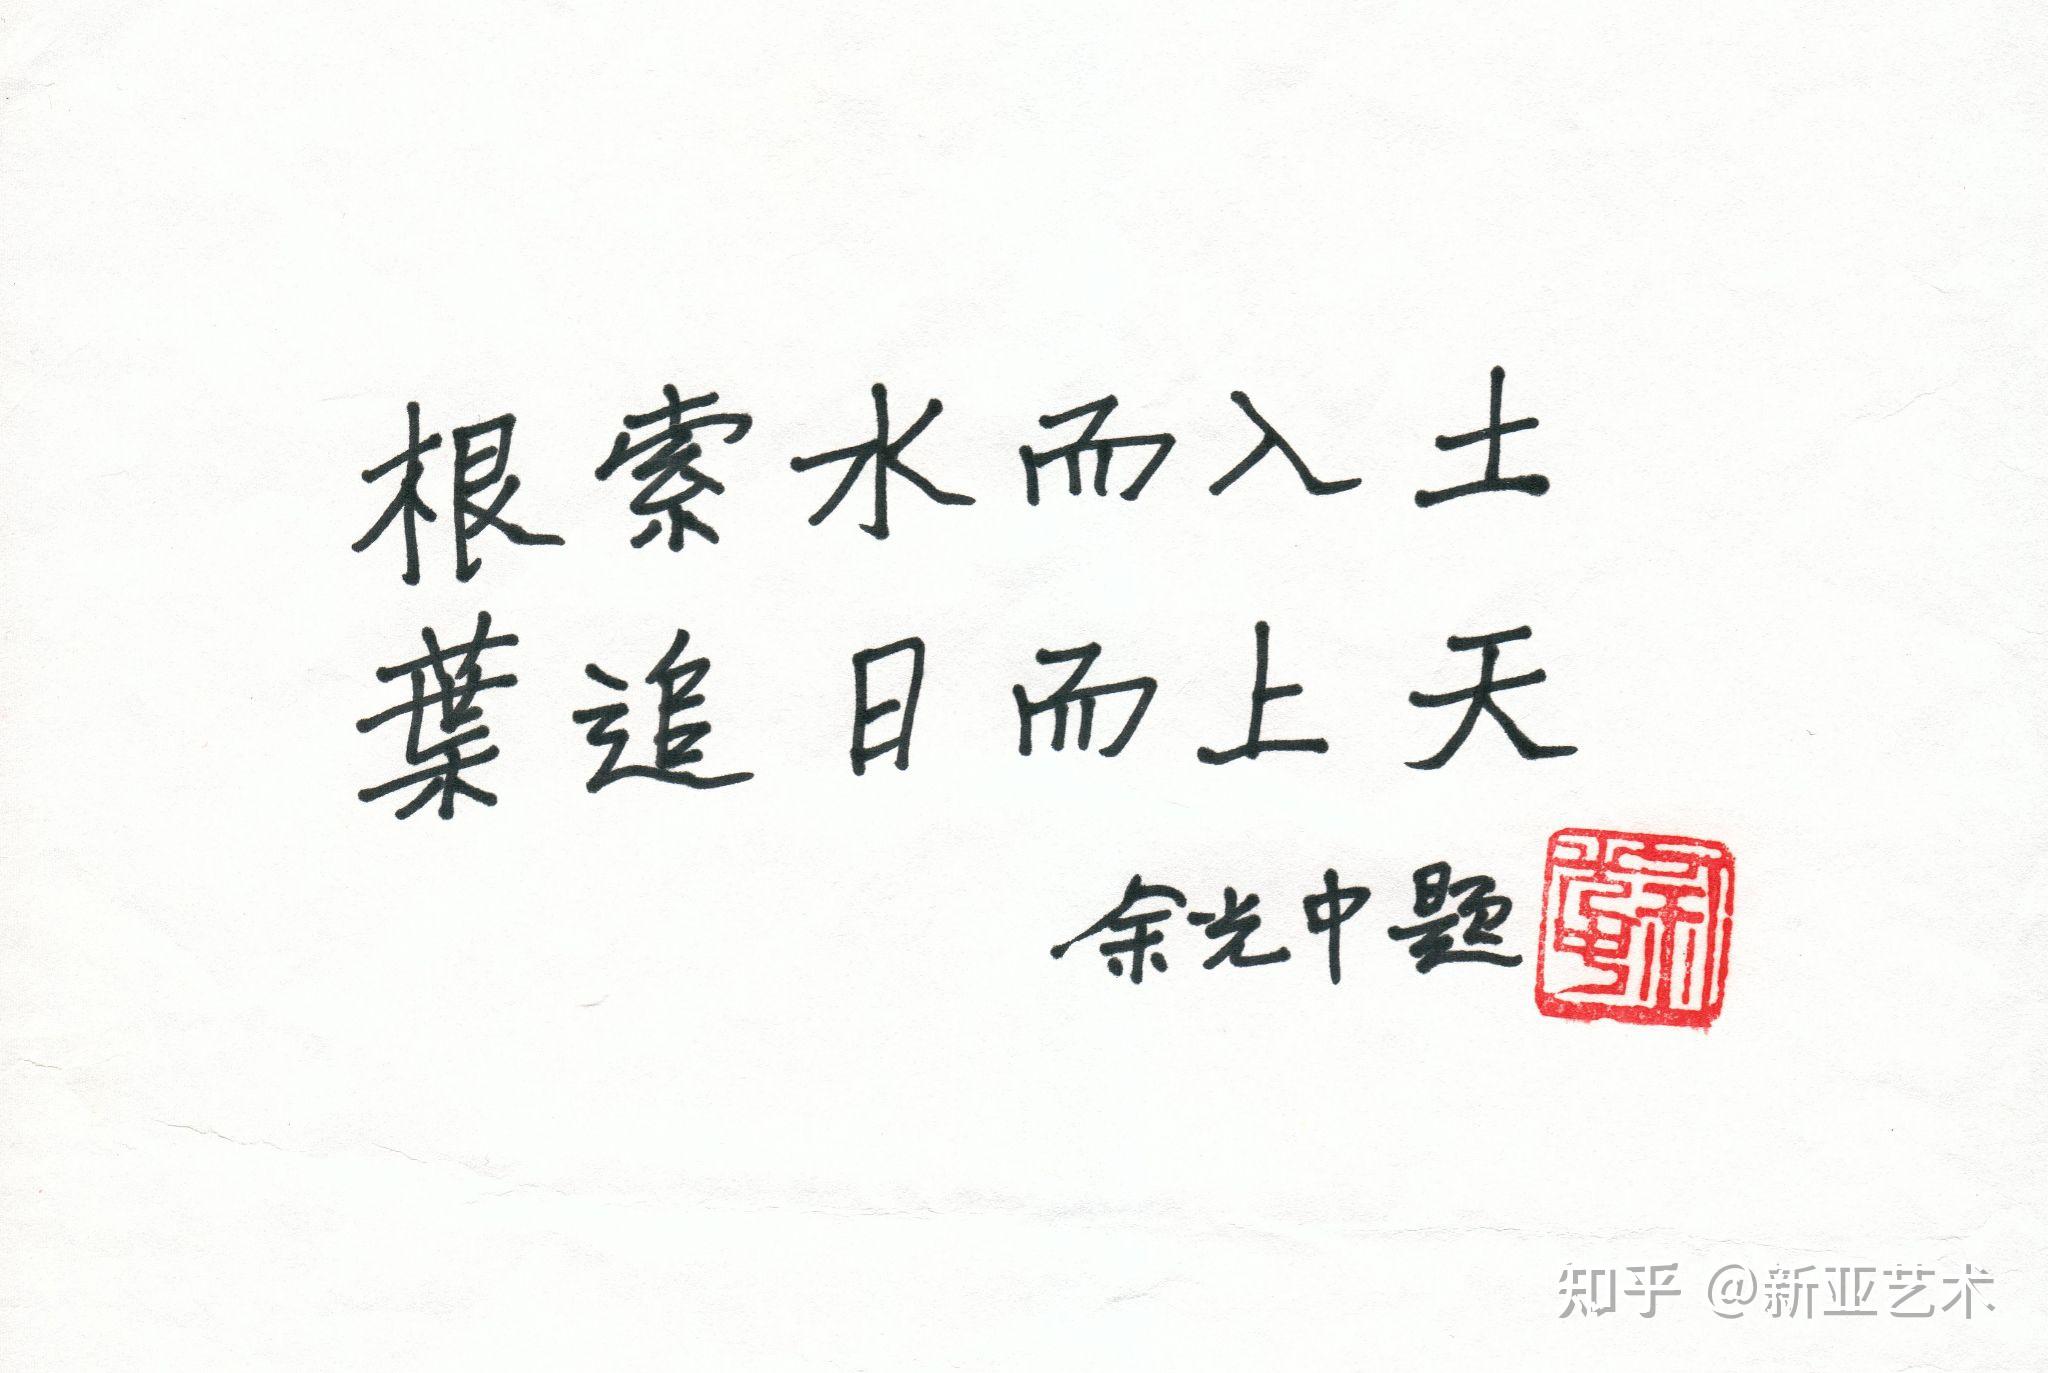 根索水而入土
葉追日而上天
余光中题
知乎 @新亚艺术